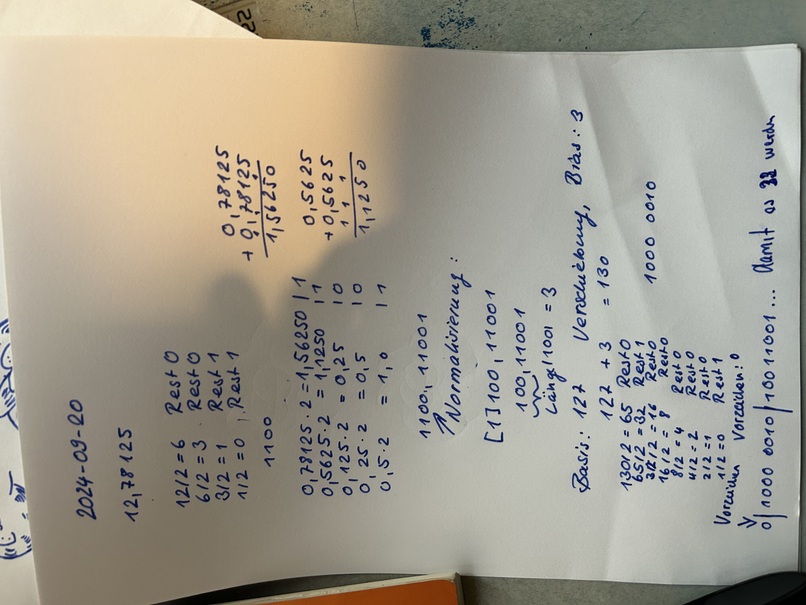 2024-09-20
12,78125
12/2 = 6 Rest 0
6/2 = 3 Rest 0
3/2 = 1 Rest 1
1/2 = 0 Rest 1
1100
0,78125
+ 0,78125
1,56250
0,78125 · 2 = 1,56250 | 1
0,5625 · 2 = 1,1250 | 1
0,125 · 2 = 0,25 | 0
0,25 · 2 = 0,5 | 0
0,5 · 2 = 1,0 | 1
0,5625
+ 0,5625
1 1 1
1,1250
1100,11001
Normalisierung:
[1]100,11001
100,11001
Länge = 3
Basis: 127 Verschiebung, Bias: 3
127 + 3 = 130
130/2 = 65 Rest 0
65/2 = 32 Rest 1
32/2 = 16 Rest 0
16/2 = 8 Rest 0
8/2 = 4 Rest 0
4/2 = 2 Rest 0
2/2 = 1 Rest 0
1/2 = 0 Rest 1
1000 0010
Vorzeichen Vorzeichen: 0
0|1000 0010|10011001... damit es 32 werden